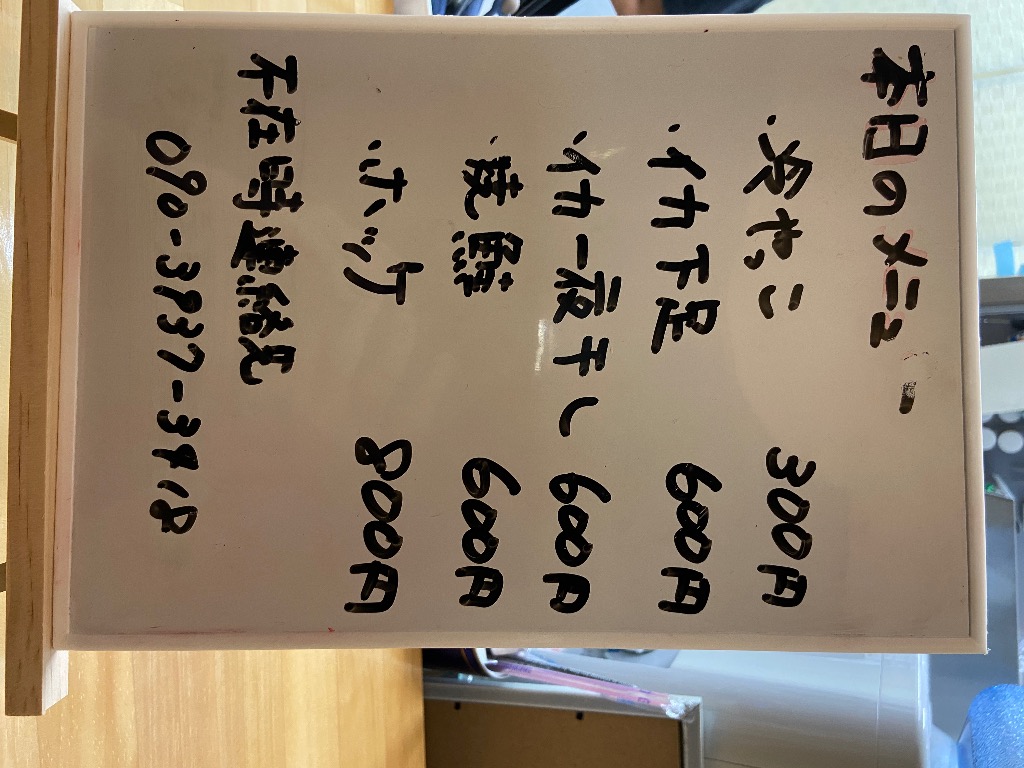 本日のメニュー
、冷やこ 300円
、イカ下足 600円
、イカ一夜干し 600円
、600円
、ホッケ 800円
不在時連絡先
090-3937-3918